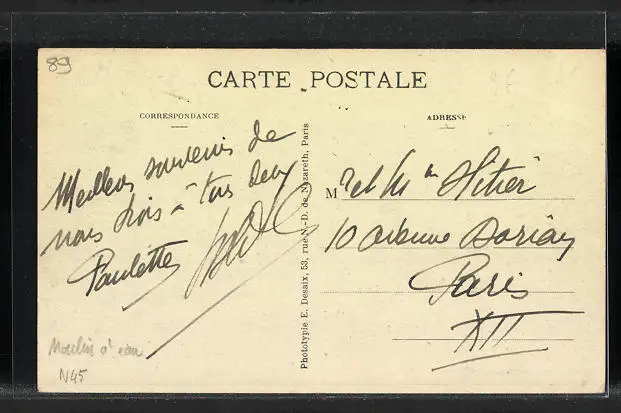 89
CARTE POSTALE
CORRESPONDANCE
ADRESSE
Meilleurs souvenirs de
nous trois à tous deux
Paulette
Phototypie E. Desaix, 53, rue N.-D. de Nazareth, Paris
M r et Mme Hitier
10 avenue Dorian
Paris
XII
Moulin à eau
N45